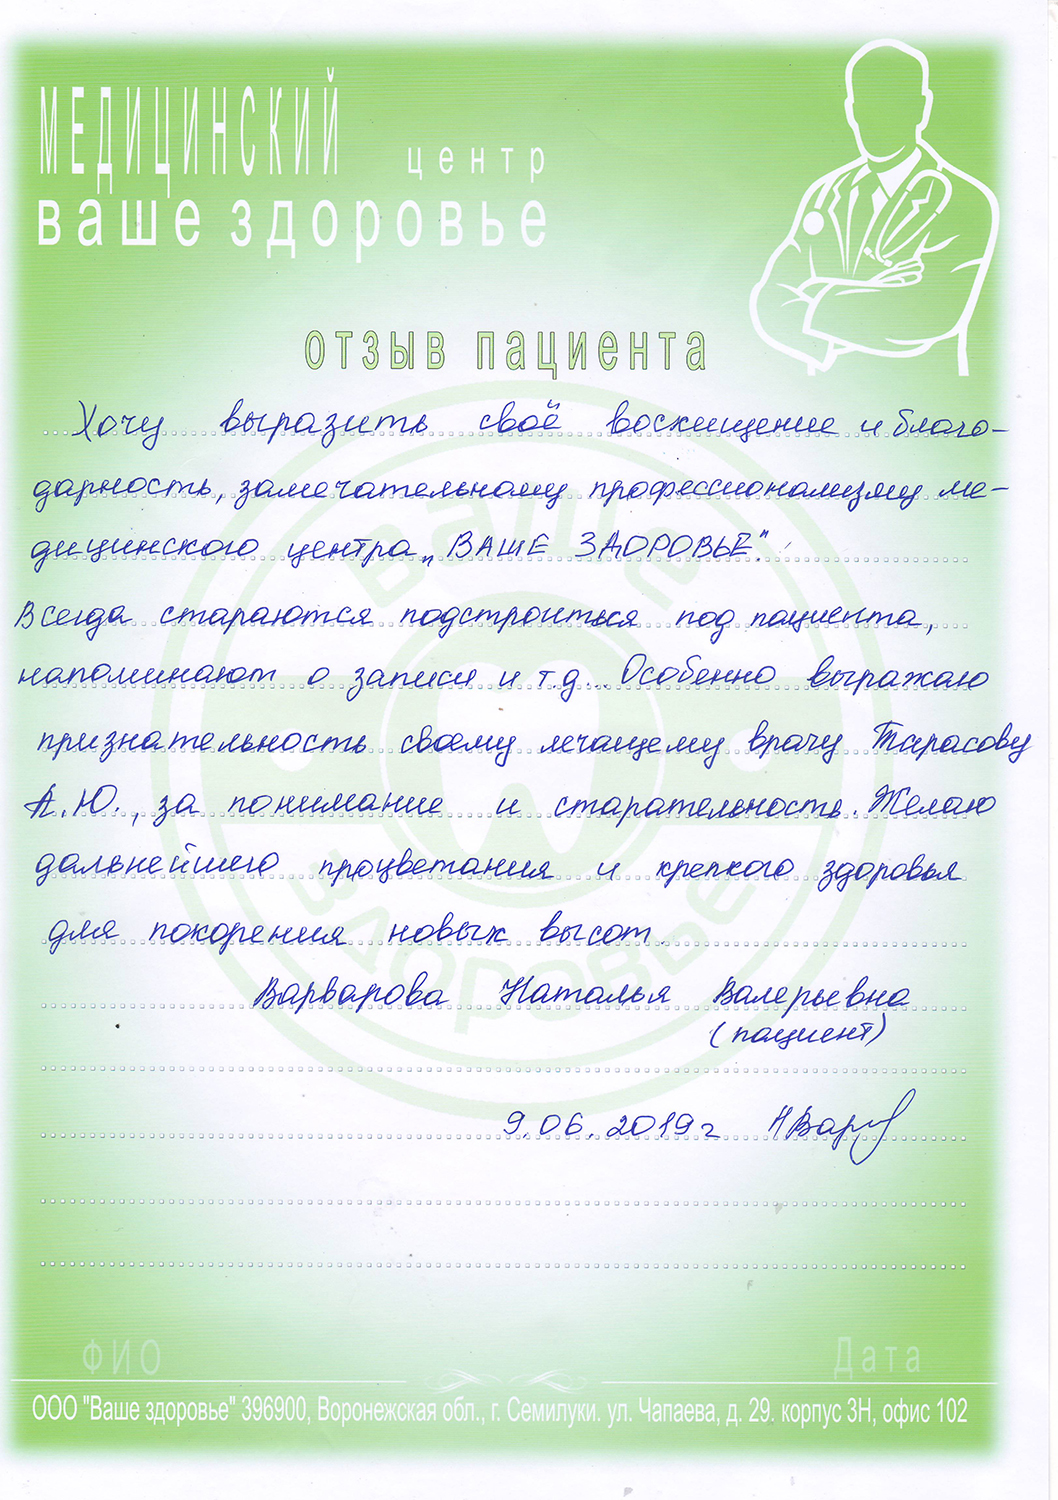 МЕДИЦИНСКИЙ центр
ваше здоровье
отзыв пациента
Хочу выразить своё восхищение и благо-
дарность, замечательному профессионализму ме-
дицинского центра „ВАШЕ ЗДОРОВЬЕ".
Всегда стараются подстроиться под пациента,
напоминают о записи и т.д... Особенно выражаю
признательность своему лечащему врачу Тарасову
А.Ю., за понимание и старательность. Желаю
дальнейшего процветания и крепкого здоровья
для покорения новых высот.
Варварова Наталья Валерьевна
(пациент)
9.06.2019г НВар
ФИО Дата
ООО "Ваше здоровье" 396900, Воронежская обл., г. Семилуки. ул. Чапаева, д. 29. корпус 3Н, офис 102
ваше здоровье